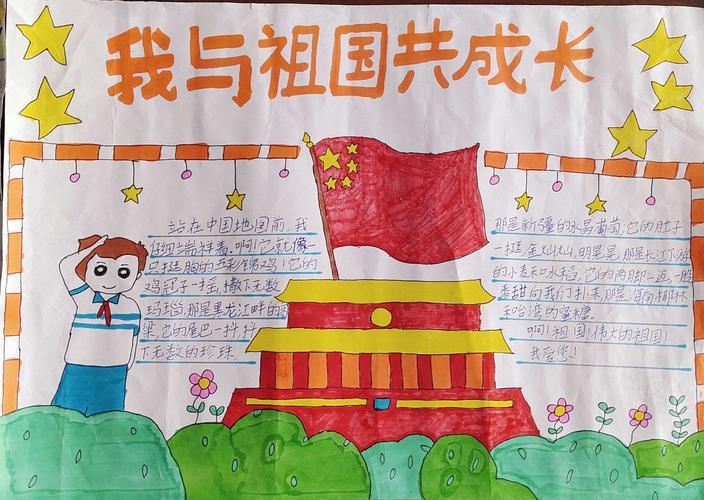 我与祖国共成长
站在中国地图前，我
仔细端祥着.啊!它就像一
只挺胸的五彩锦鸡!它的
鸡冠子一摇,撒下无数
玛瑙,那是黑龙江畔的高
梁,它的尾巴一抖,抖
下无数的珍珠.
那是新疆的水晶葡萄;它的肚子
一挺,金灿灿,明晃晃,那是长江下游
的小麦和水稻;它的两脚一迈,一股
香甜向我们扑来,那是海南椰林
和哈  的蜜糖.
啊!祖国!伟大的祖国!
我爱您!